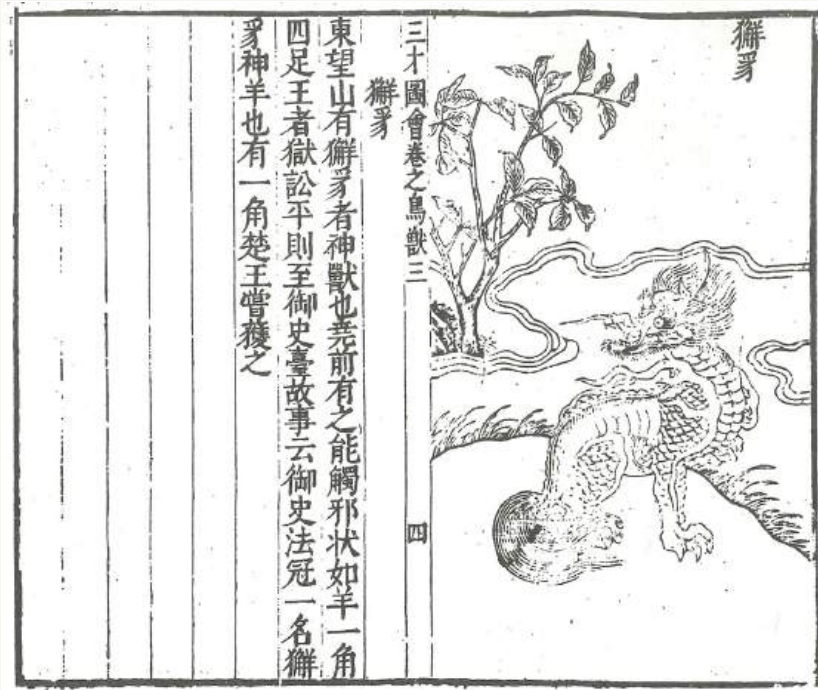 獬豸
三才圖會卷之鳥獸三 四
獬豸
東望山有獬豸者神獸也堯前有之能觸邪状如羊一角
四足王者獄訟平則至御史臺故事云御史法冠一名獬
豸神羊也有一角楚王嘗獲之